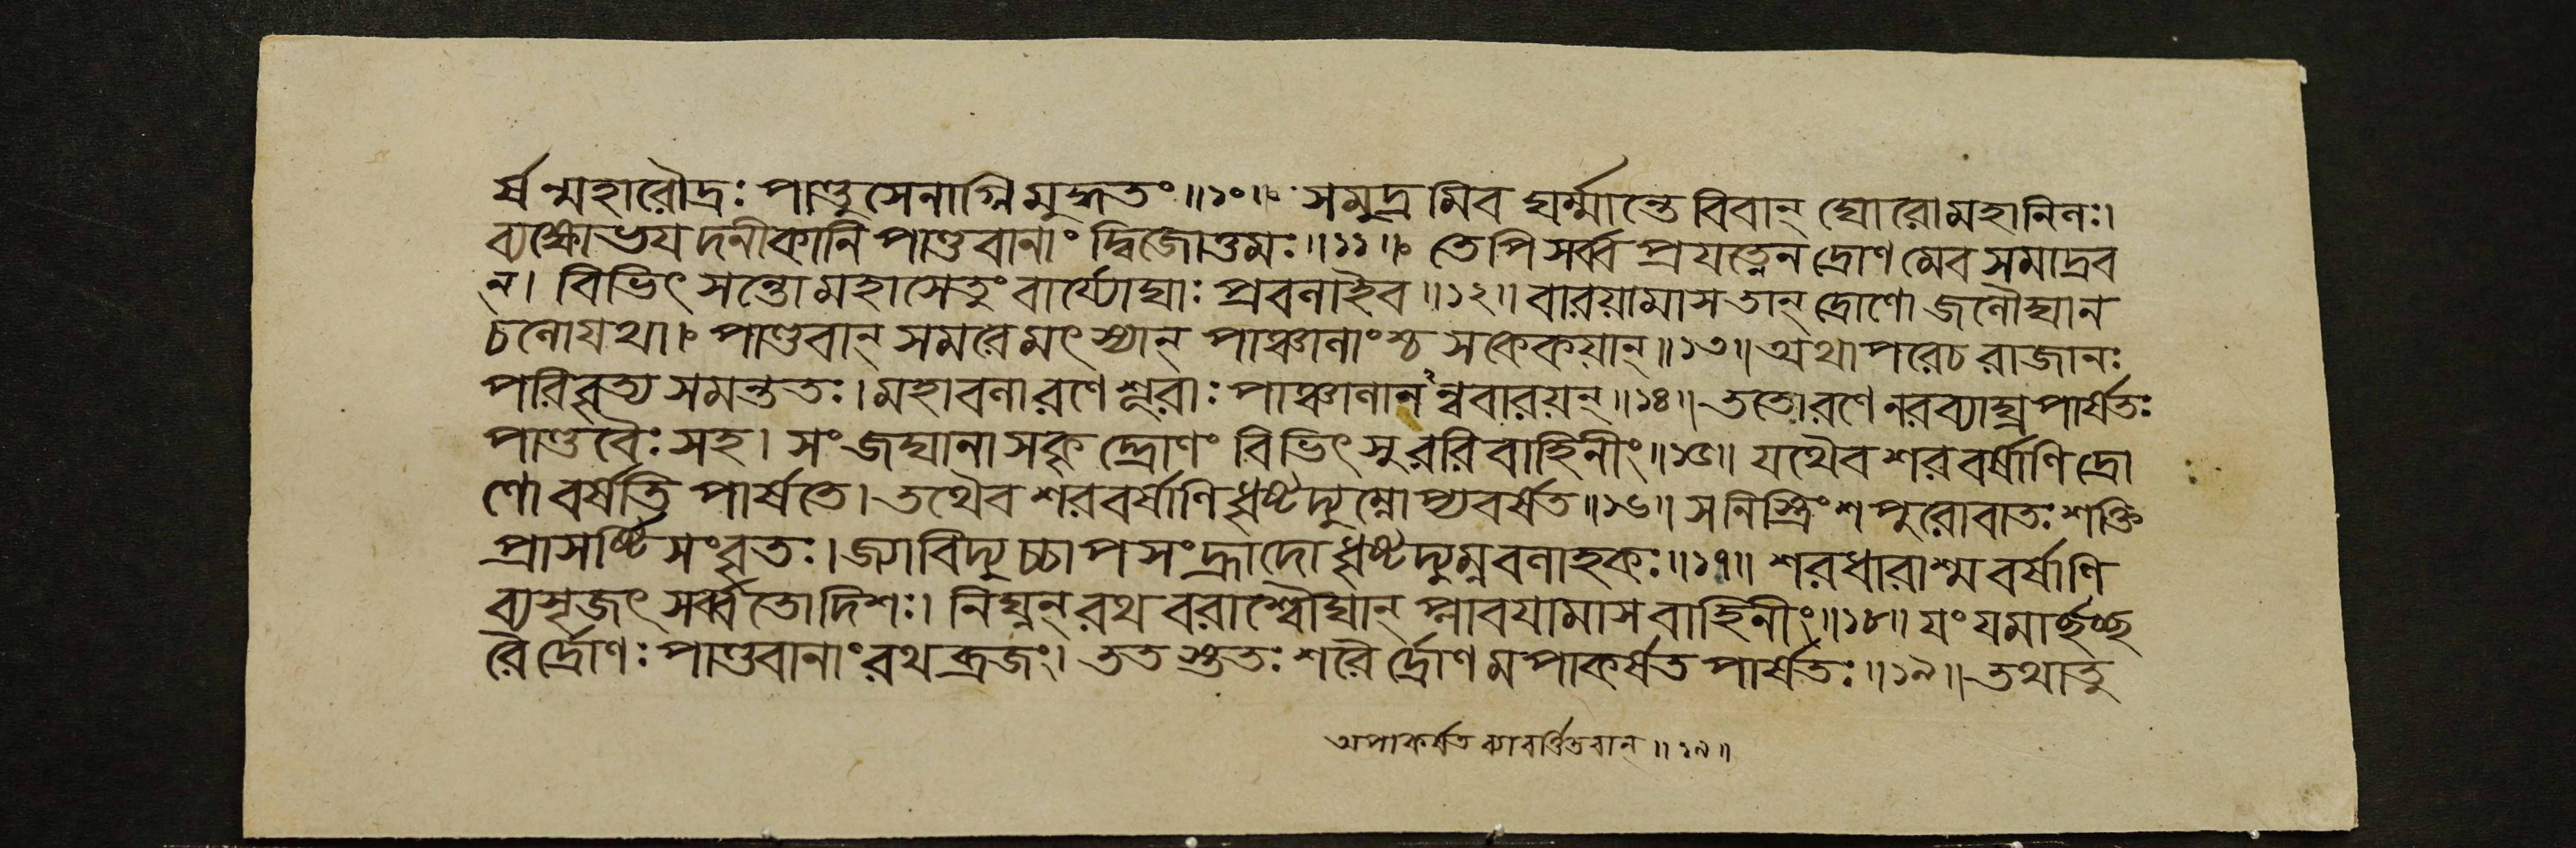 র্ষন্মহারৌদ্রঃ পাণ্ডুসেনাগ্নিমুদ্ধতং॥১০॥ সমুদ্রমিব ঘর্ম্মান্তে বিবান্ ঘোরো মহানিলঃ।
ব্যক্ষোভযদনীকানি পাণ্ডবানাং দ্বিজোত্তমঃ॥১১॥ তেপি সর্ব্বপ্রযত্নেন দ্রোণমেব সমাদ্রব
ন্। বিভিৎসন্তো মহাসেতুং বার্য্যোঘাঃ প্রবলাইব॥১২॥ বারয়ামাস তান্ দ্রোণো জলৌঘান
চলো যথা। পাণ্ডবান্ সমরে মৎস্যান্ পাঞ্চালাংশ্চ সকেকয়ান্॥১৩॥ অথাপরেচ রাজানঃ
পরিবৃত্য সমন্ততঃ। মহাবলা রণে শূরাঃ পাঞ্চালানন্ববারয়ন্॥১৪॥ ততো রণে নরব্যাঘ্র পার্ষতঃ
পাণ্ডবৈঃ সহ। সংজঘানাসকৃদ্দ্রোণং বিভিৎসুররিবাহিনীং॥১৫॥ যথৈব শরবর্ষাণি দ্রো
ণো বর্ষতি পার্ষতে। তথৈব শরবর্ষাণি ধৃষ্টদ্যুম্নোপ্যবর্ষত॥১৬॥ সনিস্ত্রিংশপুরোবাতঃ শক্তি
প্রাসর্ষ্টিসংবৃতঃ। জ্যাবিদ্যুচ্চাপসংহ্রাদো ধৃষ্টদ্যুম্নবলাহকঃ॥১৭॥ শরধারাশ্মবর্ষাণি
ব্যসৃজৎ সর্ব্বতোদিশঃ। নিঘ্নন্ রথবরাশ্বৌঘান্ প্লাবযামাস বাহিনীং॥১৮॥ যং যমার্চ্ছচ্ছ
রৈর্দ্রোণঃ পাণ্ডবানাং রথব্রজং। ততস্ততঃ শরৈর্দ্রোণমপাকর্ষত পার্ষতঃ॥১৯॥ তথাতু
অপাকর্ষত ব্যাবর্ত্তিতবান্॥১৯॥